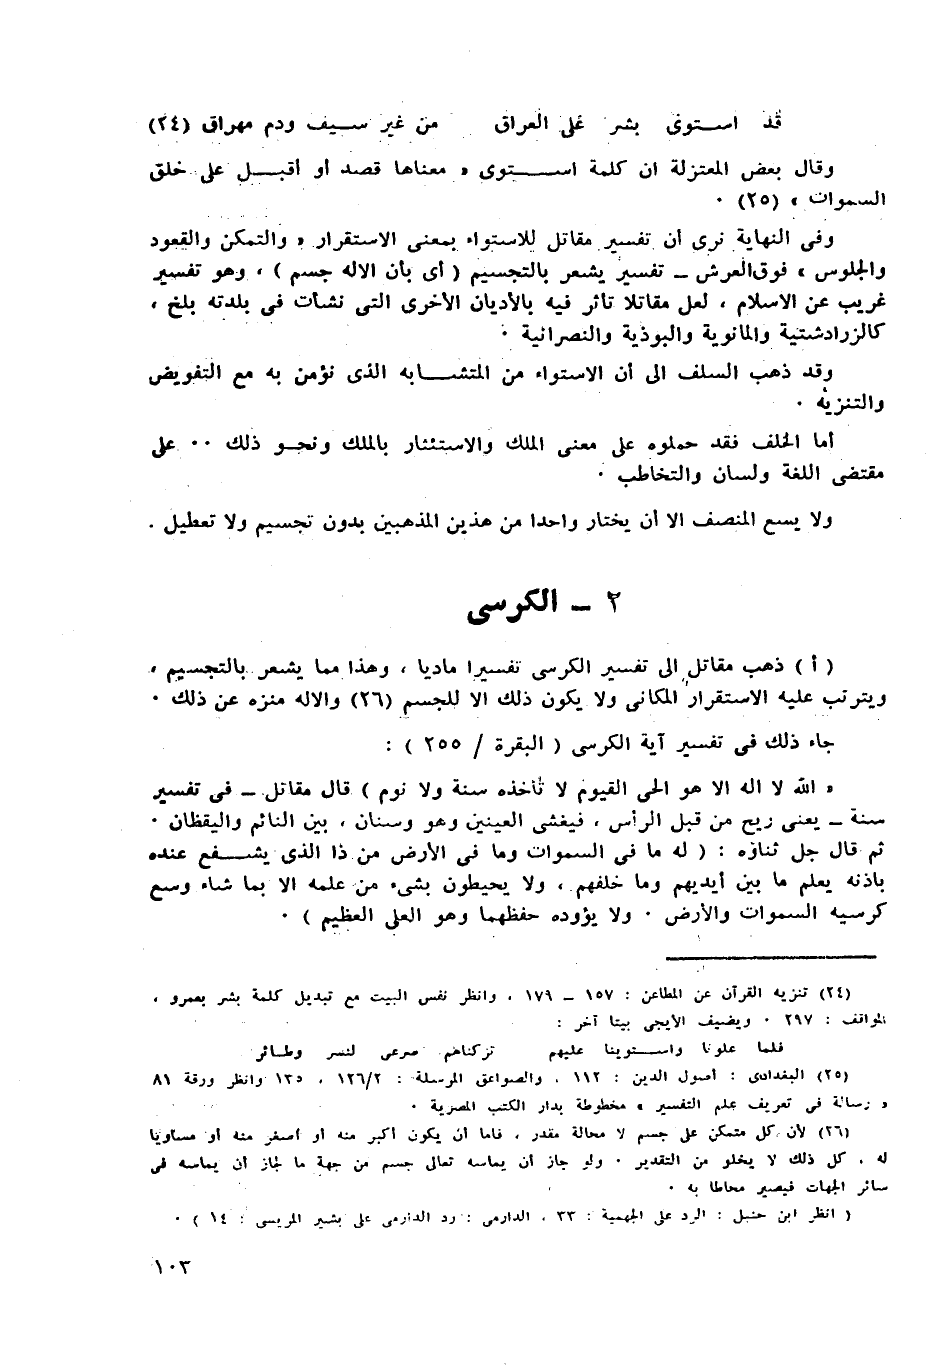 قد استوى بشر على العراق من غير سيف ودم مهراق (٢٤)
وقال بعض المعتزلة ان كلمة استوى « معناها قصد أو أقبل على خلق
السموات » (٢٥) ٠
وفى النهاية نرى أن تفسير مقاتل للاستواء بمعنى الاستقرار « والتمكن والقعود
والجلوس » فوق العرش ــ تفسير يشعر بالتجسيم ( أى بأن الاله جسم ) ، وهو تفسير
غريب عن الاسلام ، لعل مقاتلا تأثر فيه بالأديان الأخرى التى نشأت فى بلدته بلخ ،
كالزرادشتية والمانوية والبوذية والنصرانية ٠
وقد ذهب السلف الى أن الاستواء من المتشابه الذى نؤمن به مع التفويض
والتنزيه ٠
أما الخلف فقد حملوه على معنى الملك والاستئثار بالملك ونحو ذلك ٠٠ على
مقتضى اللغة ولسان والتخاطب ٠
ولا يسع المنصف الا أن يختار واحدا من هذين المذهبين بدون تجسيم ولا تعطيل .
٢ ــ الكرسى
( أ ) ذهب مقاتل الى تفسير الكرسى تفسيرا ماديا ، وهذا مما يشعر بالتجسيم ،
ويترتب عليه الاستقرار المكانى ولا يكون ذلك الا للجسم (٢٦) والاله منزه عن ذلك ٠
جاء ذلك فى تفسير آية الكرسى ( البقرة / ٢٥٥ ) :
« الله لا اله الا هو الحى القيوم لا تأخذه سنة ولا نوم ) قال مقاتل ــ فى تفسير
سنة ــ يعنى ريح من قبل الرأس ، فيغشى العينين وهو وسنان ، بين النائم واليقظان ٠
ثم قال جل ثناؤه : ( له ما فى السموات وما فى الأرض من ذا الذى يشفع عنده
باذنه يعلم ما بين أيديهم وما خلفهم ، ولا يحيطون بشىء من علمه الا بما شاء وسع
كرسيه السموات والأرض ٠ ولا يؤوده حفظهما وهو العلى العظيم ) ٠
(٢٤) تنزيه القرآن عن المطاعن : ١٥٧ ــ ١٧٩ ، وانظر نفس البيت مع تبديل كلمة بشر بعمرو ،
المواقف : ٢٩٧ ٠ ويضيف الأيجى بيتا آخر :
فلما علونا واستوينا عليهم تركناهم صرعى لنسر وطائر
(٢٥) البغدادى : أصول الدين : ١١٢ ، والصواعق المرسلة : ١٢٦/٢ ، ١٣٥ وانظر ورقة ٨١
« رسالة فى تعريف علم التفسير » مخطوطة بدار الكتب المصرية ٠
(٢٦) لأن كل متمكن على جسم لا محالة مقدر ، فاما أن يكون أكبر منه أو أصغر منه أو مساويا
له ، كل ذلك لا يخلو من التقدير ٠ ولو جاز أن يماسه تعالى جسم من جهة ما لجاز أن يماسه فى
سائر الجهات فيصير محاطا به ٠
( انظر ابن حنبل : الرد على الجهمية : ٣٣ ، الدارمى : رد الدارمى على بشير المريسى : ١٤ ) ٠
١٠٣